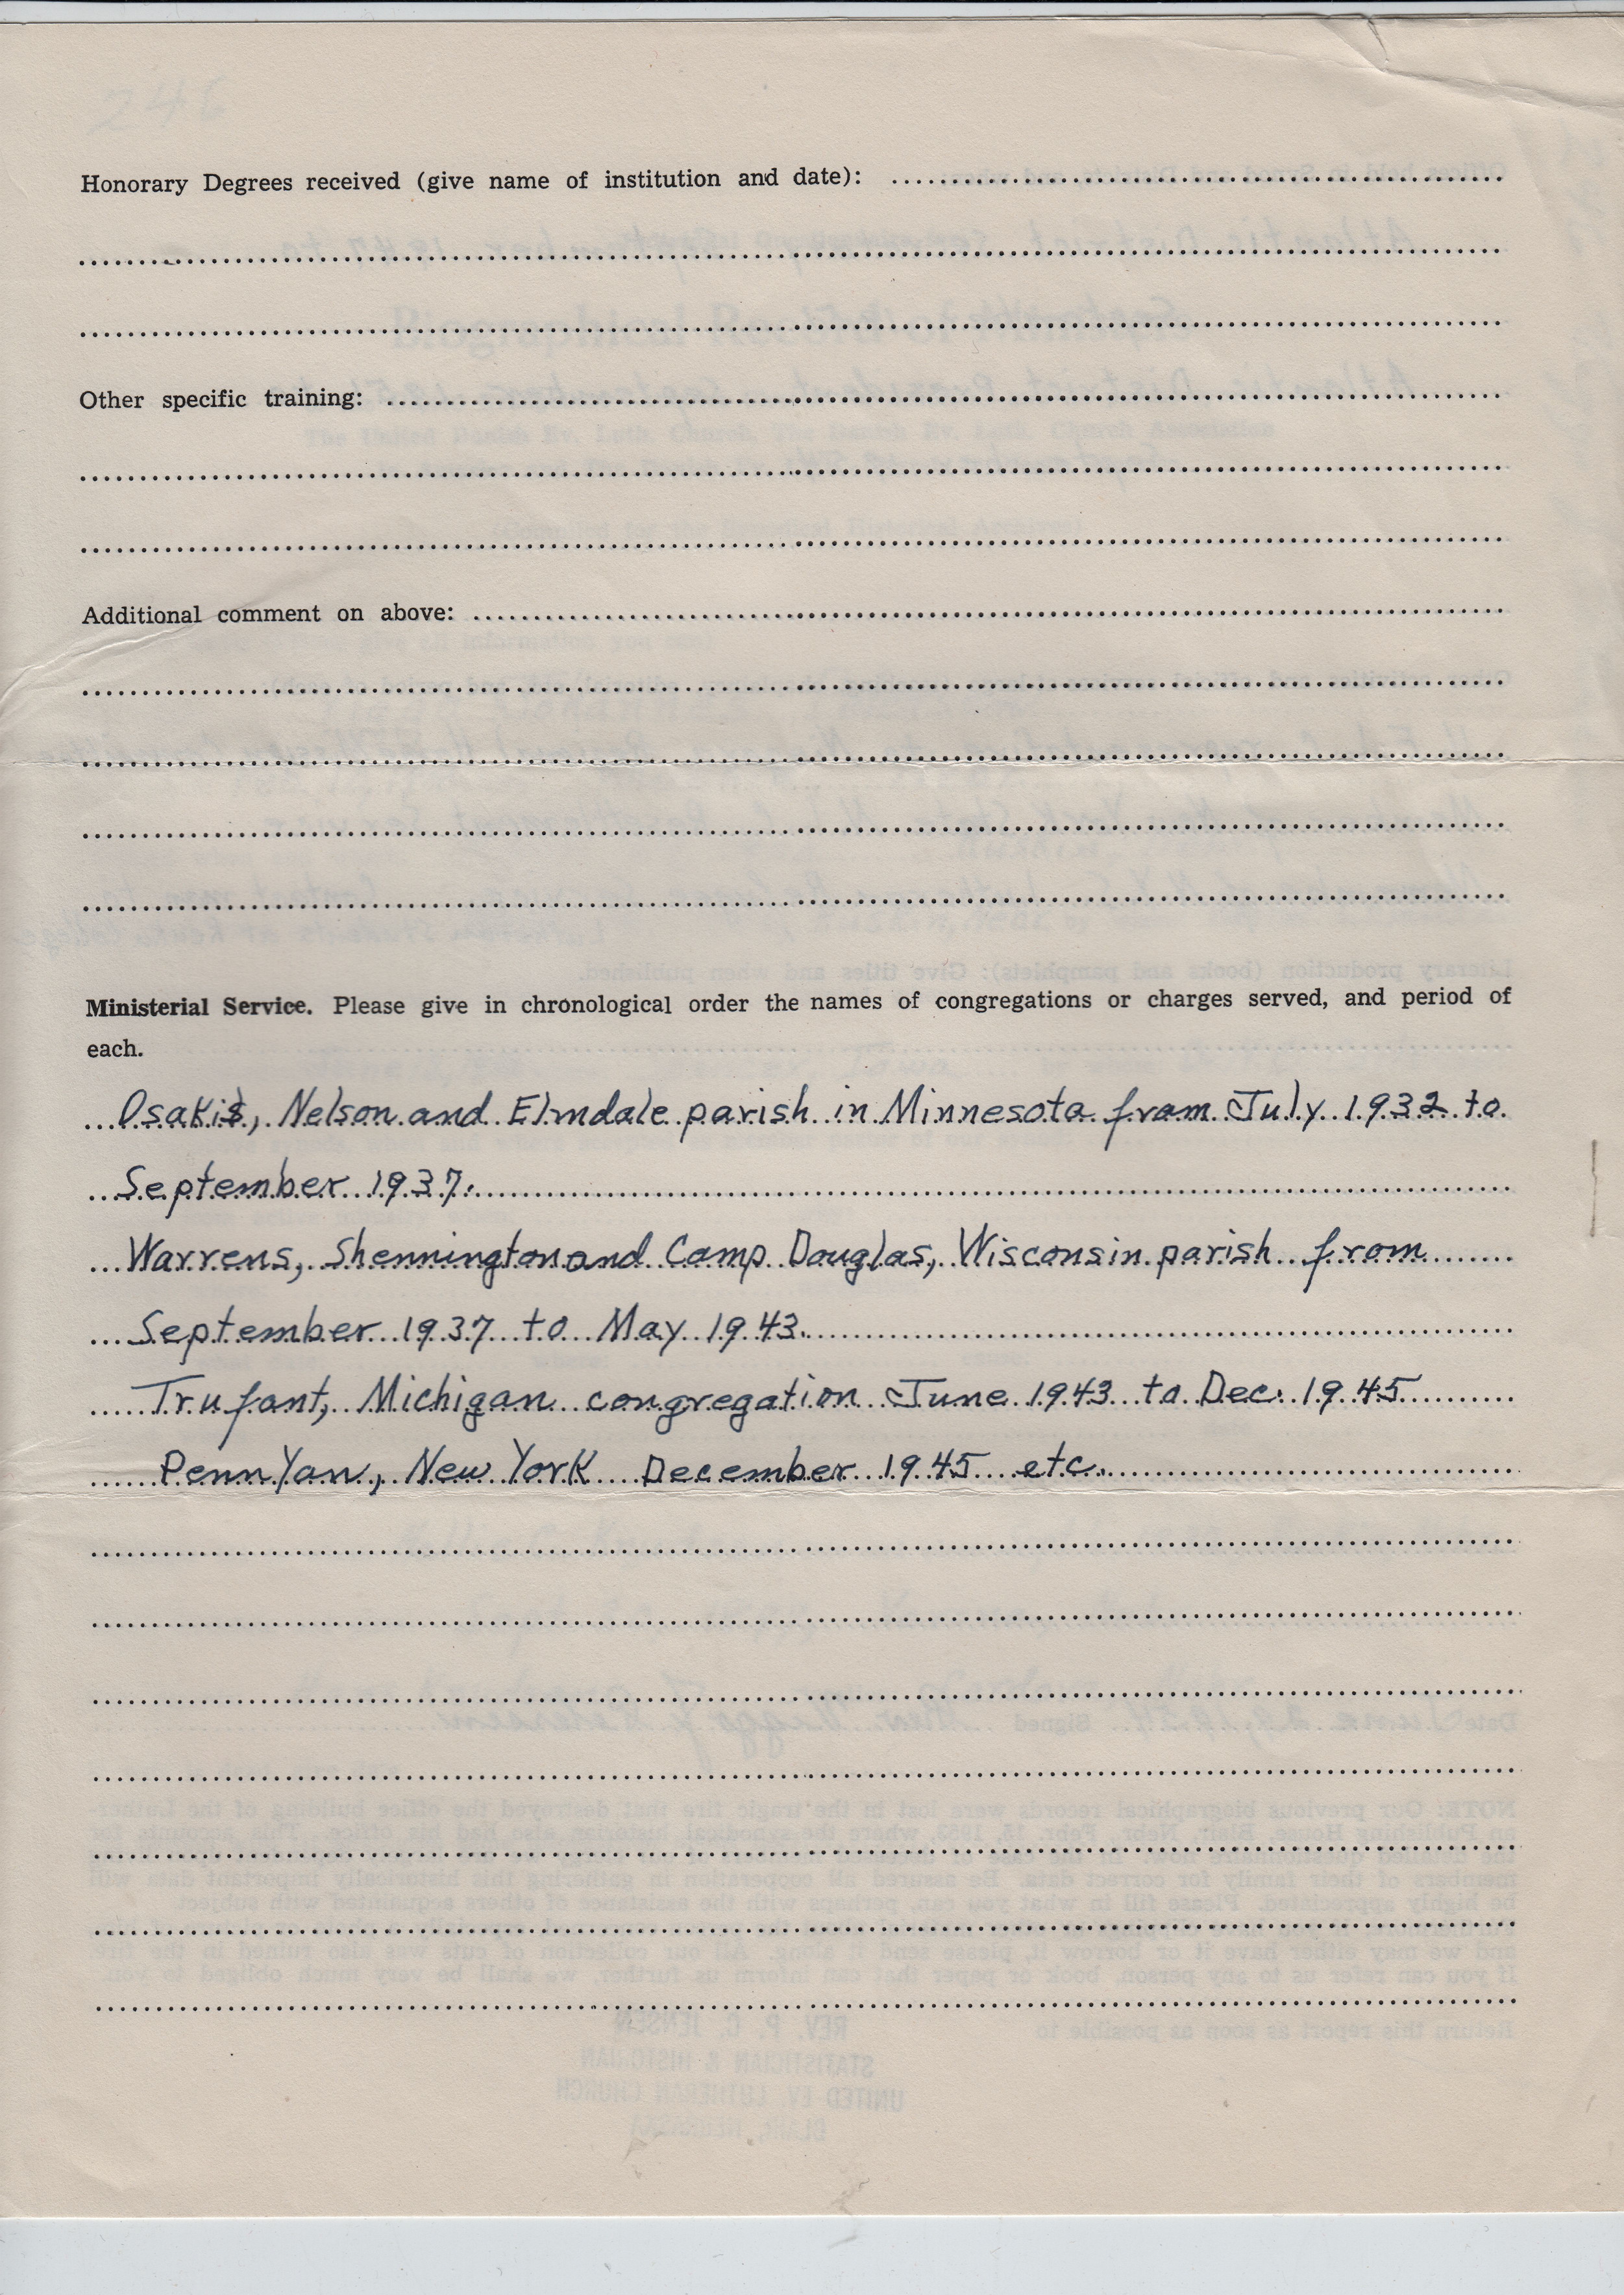 Honorary Degrees received (give name of institution and date):
Other specific training:
Additional comment on above:
Ministerial Service. Please give in chronological order the names of congregations or charges served, and period of
each.
Osakis, Nelson and Elmdale parish in Minnesota from July 1932 to
September 1937.
Warrens, Shennington and Camp Douglas, Wisconsin parish from
September 1937 to May 1943.
Trufant, Michigan congregation June 1943 to Dec. 1945
Penn Yan, New York December 1945 etc.